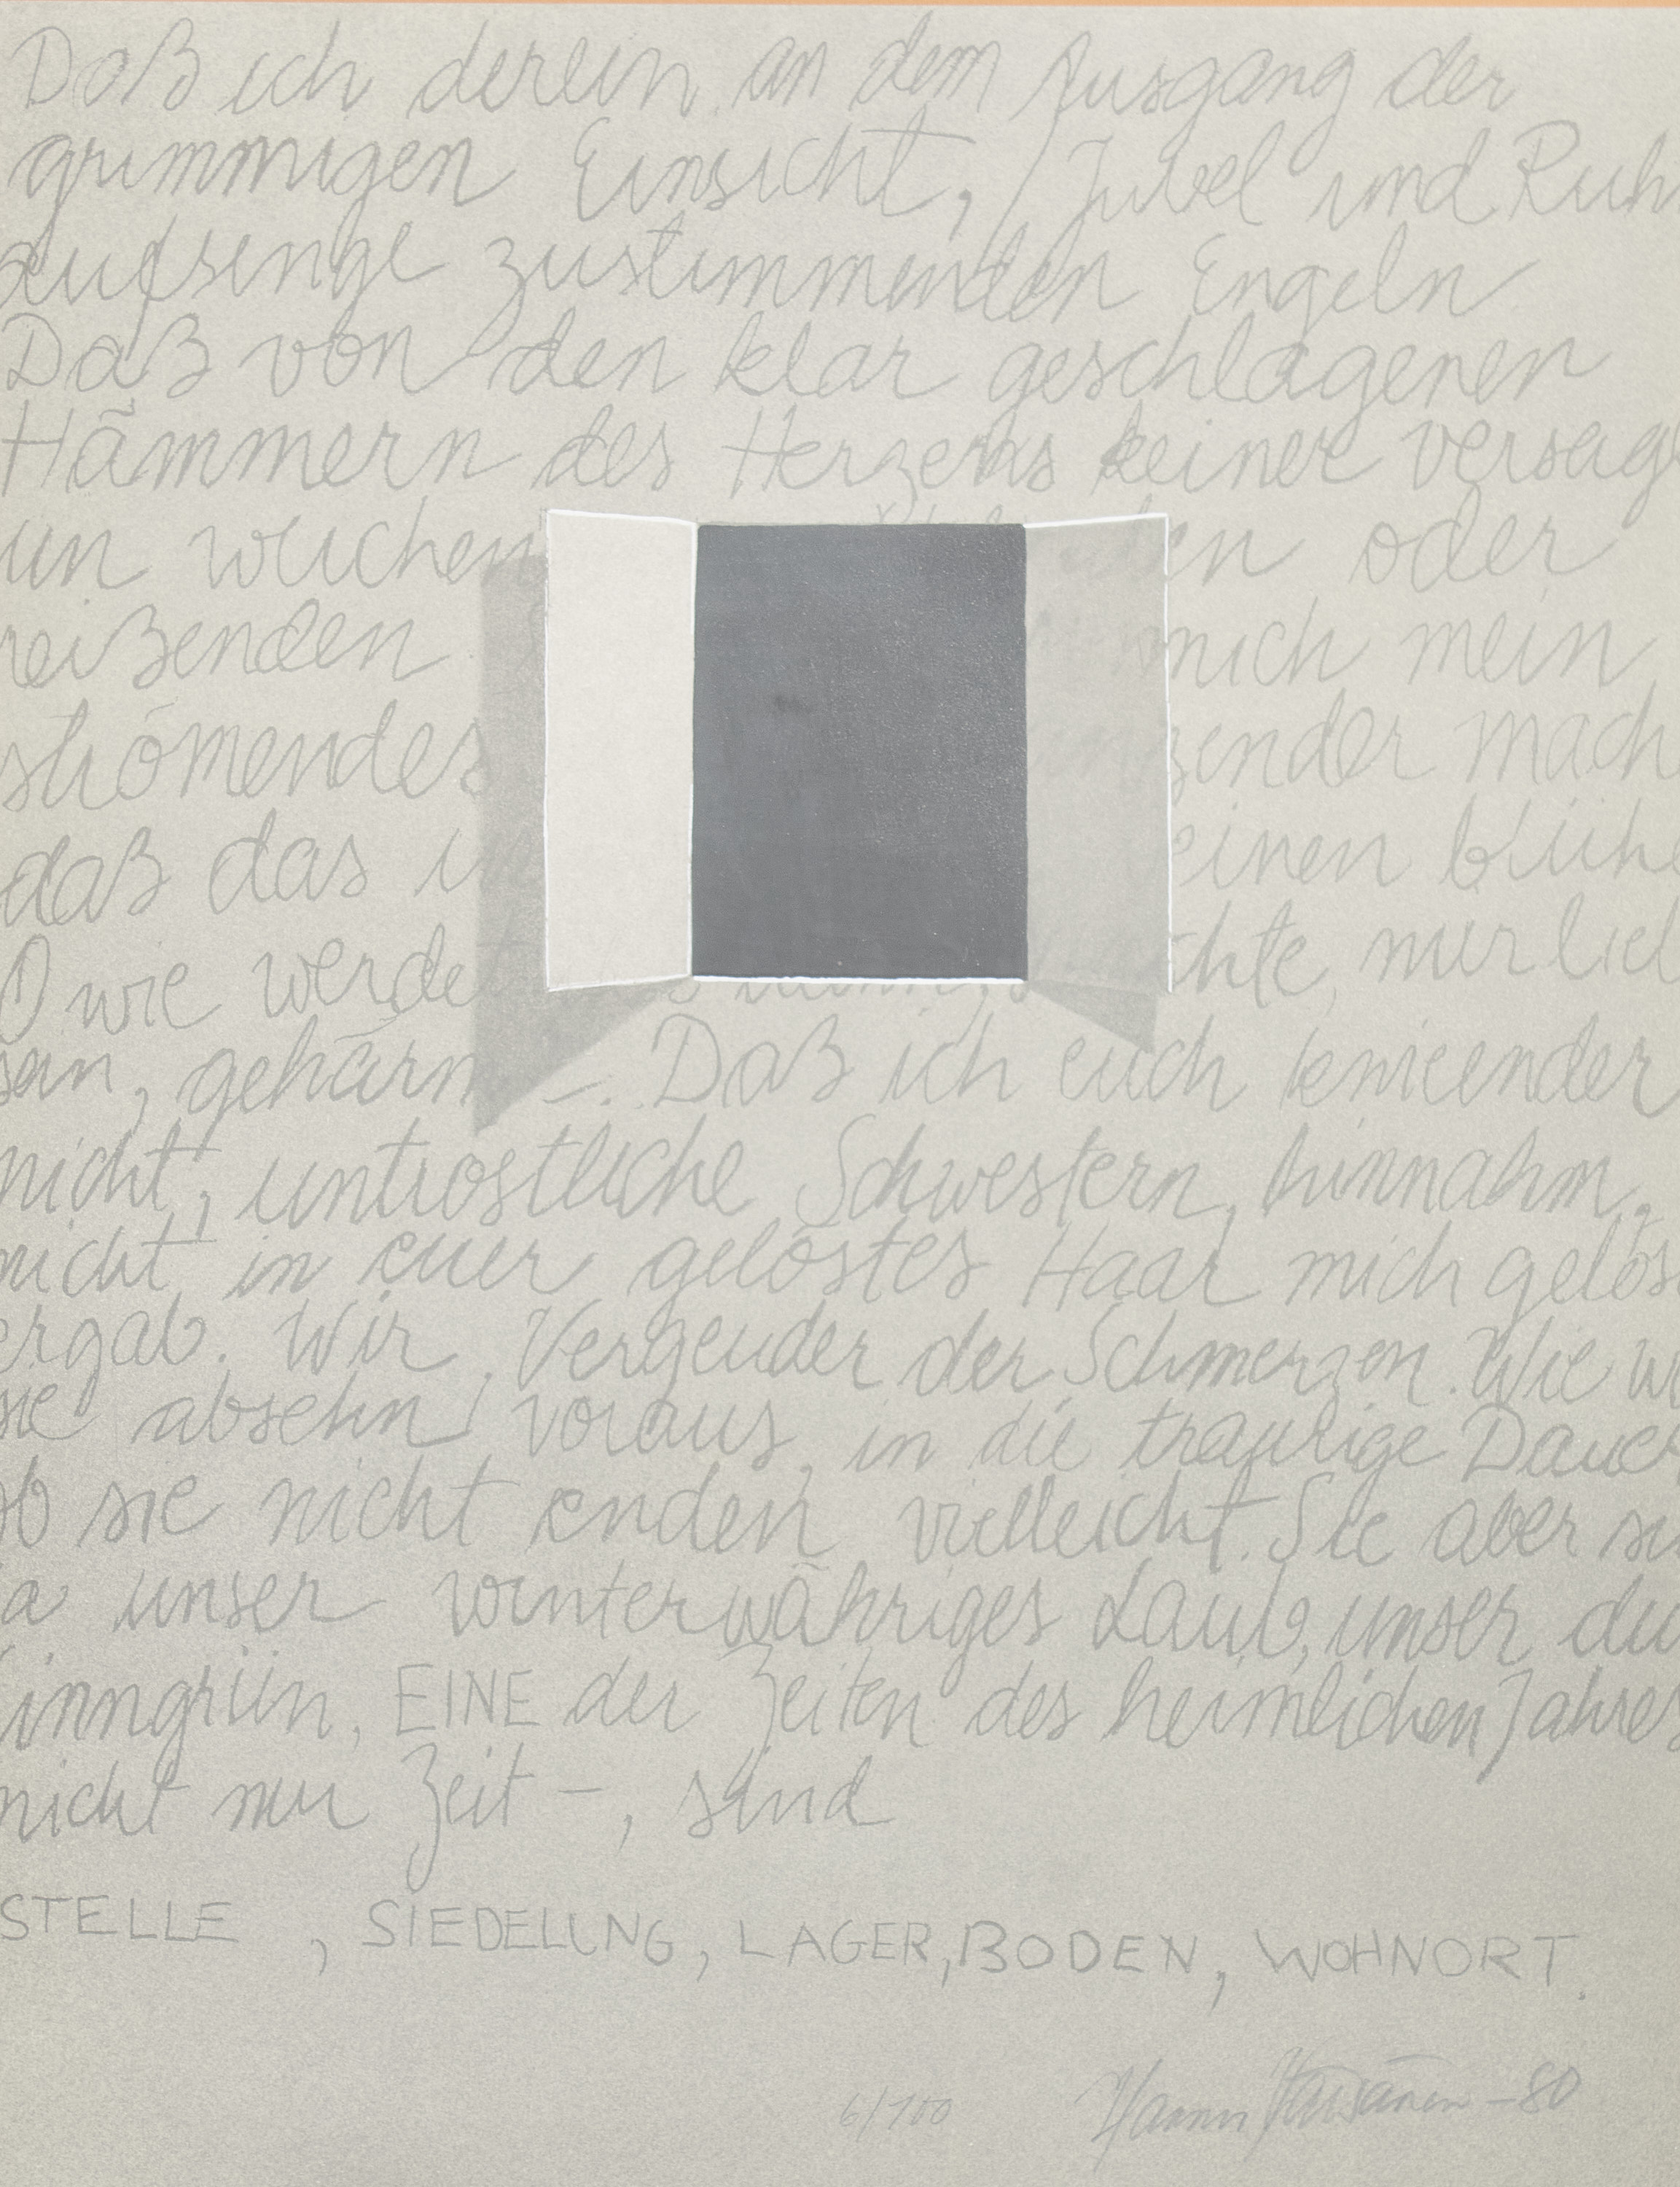 Daß ich derein an dem Ausgang der
grimmigen Einsicht, / Jubel und Ruh
aufsinge zustimmenden Engeln
Daß von den klar geschlagenen
Hämmern des Herzens keiner versag
un weichen oder
reißenden mich mein
strömendes zender mach
daß das einen blühe
O wie werdet chte, mir lieb
sein, gehärm –. Daß ich euch knieender
nicht, untröstliche Schwestern, hinnahm,
nicht in euer gelöstes Haar mich gelös
ergab. Wir, Vergeuder der Schmerzen. Wie wi
sie absehn voraus, in die traurige Dauer
ob sie nicht enden vielleicht. Sie aber si
a unser winterwähriges Laub, unser du
inngrün, EINE der Zeiten des heimlichen Jahres
nicht nur Zeit –, sind
STELLE, SIEDELUNG, LAGER, BODEN, WOHNORT.
6/100 Hannu Väisänen -80